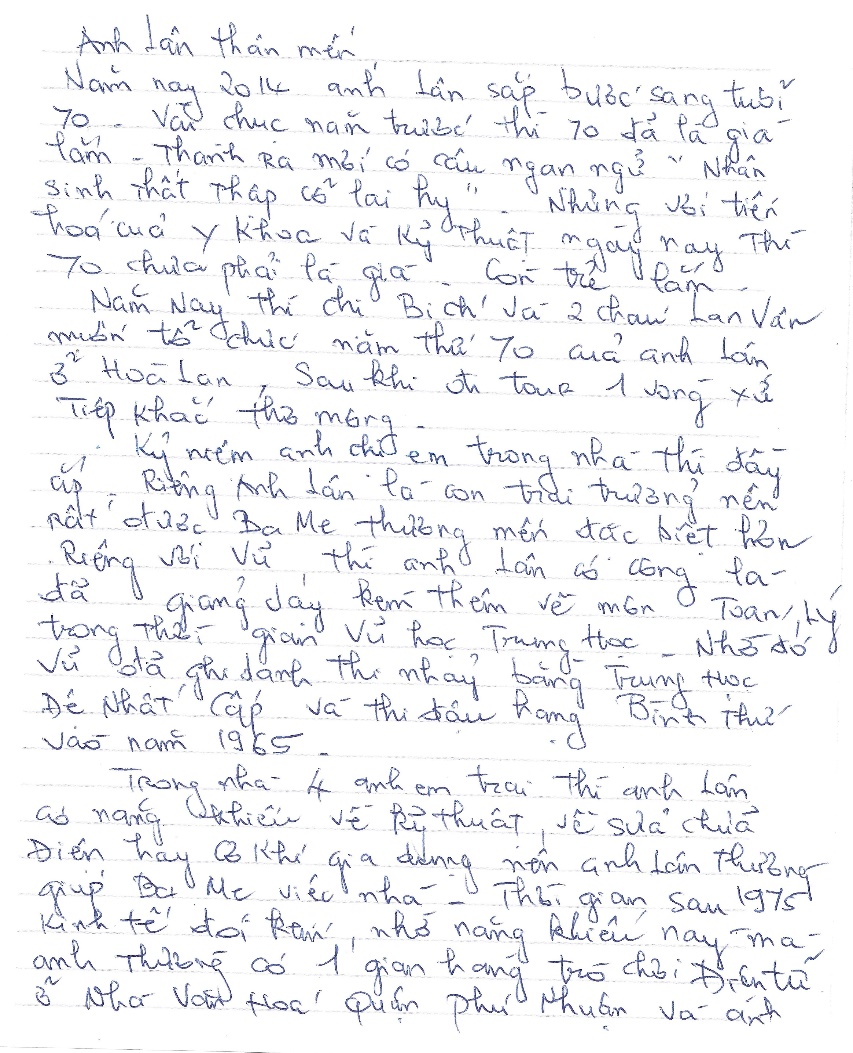 Anh Lân thân mến,
Năm nay 2014 anh Lân sắp bước sang tuổi
70 - Vài chục năm trước thì 70 đã là già
lắm - Thành ra mới có câu ngạn ngữ " Nhân
sinh thất thập cổ lai hy " . Nhưng với tiến
hoá của y khoa và kỷ thuật ngày nay thì
70 chưa phải là già - Còn trẻ lắm -
Năm nay thì chị Bích và 2 cháu Lan Vân
muốn tổ chức năm thứ 70 của anh Lân
ở Hoà Lan, Sau khi đi tour 1 vòng xứ
Tiệp Khắc thơ mộng -
Kỷ niệm anh chị em trong nhà thì đầy
ắp - Riêng Anh Lân là con trai trưởng nên
rất được Ba Mẹ thương mến đặc biệt hơn
. Riêng với Vũ thì anh Lân có công là
đã giảng dạy kèm thêm về môn Toán, Lý
trong thời gian Vũ học Trung Học - Nhờ đó
Vũ đã ghi danh thi nhảy bằng Trung Học
Đệ Nhất Cấp và thi đậu hạng Bình Thứ
vào năm 1965 .
Trong nhà 4 anh em trai thì anh Lân
có năng khiếu về kỷ thuật, về sửa chửa
Điện hay Cơ Khí gia dụng nên anh Lân thường
giúp Ba Mẹ việc nhà - Thời gian sau 1975
kinh tế đói kém, nhờ năng khiếu này mà
anh Thường có 1 gian hàng trò chơi Điện tử
ở Nhà Văn Hoá Quận Phú Nhuận và anh